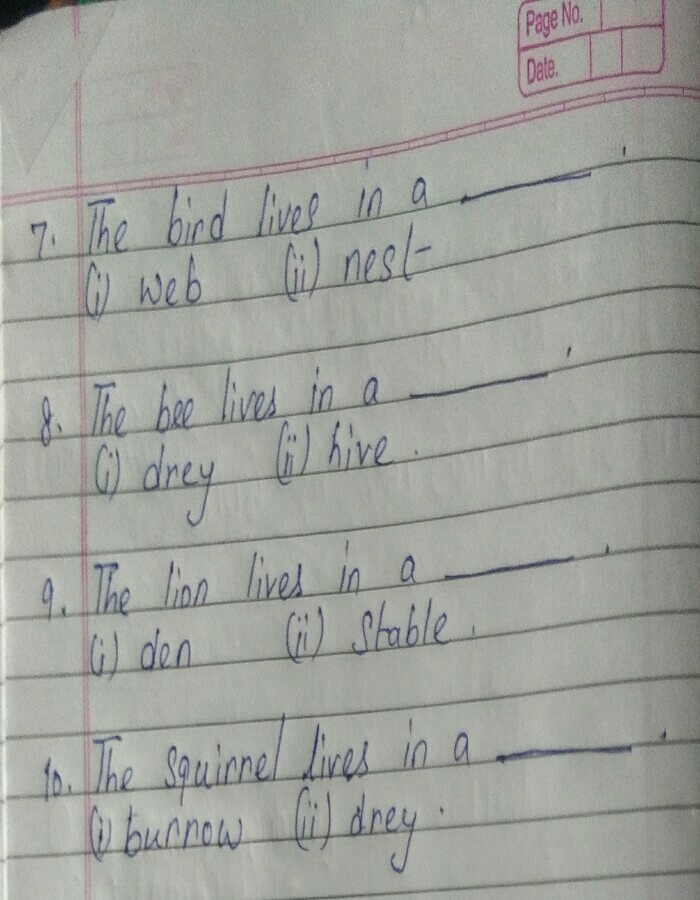 Page No.
Date.
7. The bird lives in a ______.
(i) web (ii) nest
8. The bee lives in a ______.
(i) drey (ii) hive.
9. The lion lives in a ______.
(i) den (ii) stable.
10. The squirrel lives in a ______.
(i) burrow (ii) drey.